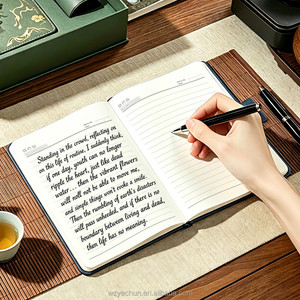 Standing in the crowd, reflecting on
this life of routine, I suddenly think,
if one day, youth can no longer
ripple the heart, just like dead
water... then the vibrant flowers
will not be able to move me,
and simple things won't evoke a smile.
Then the rumbling of earth's disasters
will pass unheeded, and if there is no
boundary between living and dead,
then life has no meaning.
wzyechun.en.alibaba.com